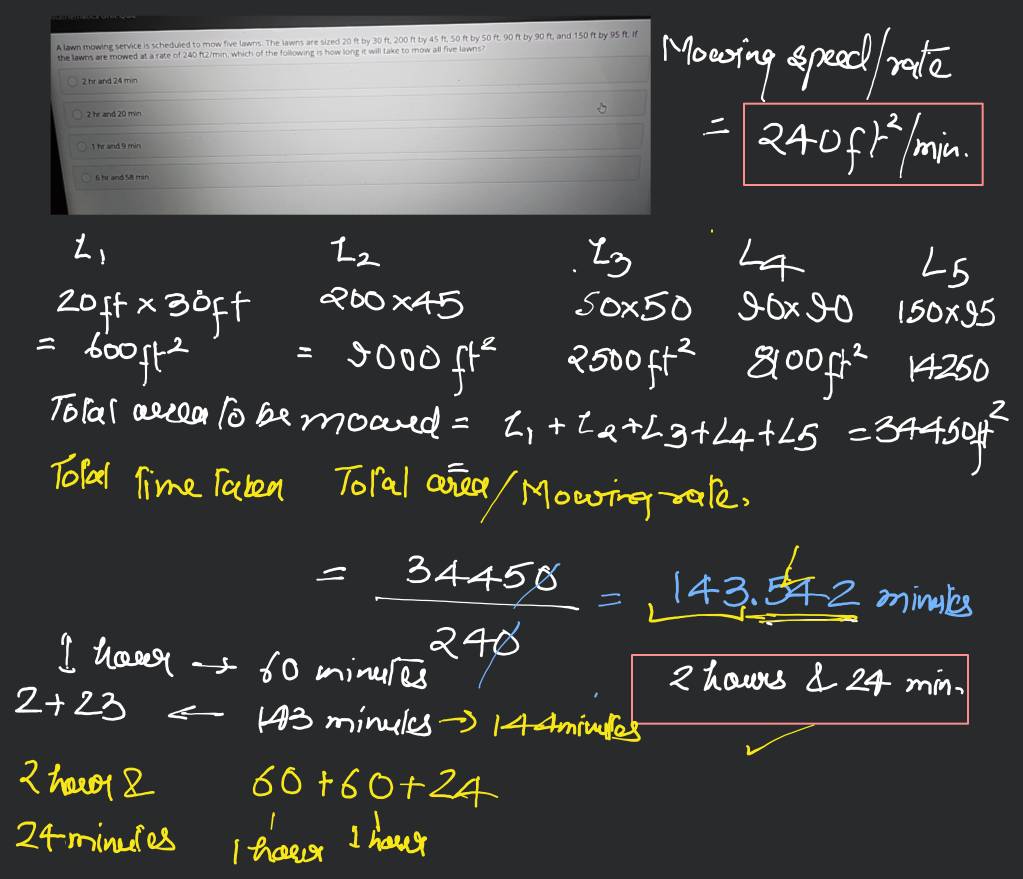 A lawn mowing service is scheduled to mow five lawns. The lawns are sized 20 ft by 30 ft, 200 ft by 45 ft, 50 ft by 50 ft, 90 ft by 90 ft, and 150 ft by 95 ft. If
the lawns are mowed at a rate of 240 ft2/min, which of the following is how long it will take to mow all five lawns?
2 hr and 24 min
2 hr and 20 min
1 hr and 9 min
6 hr and 58 min
Mowing speed/rate
= 240ft²/min.
L₁ L₂ L3 L4 L5
20ft x 30ft 200 x45 50x50 90x90 150x95
= 600ft² = 9000 ft² 2500ft² 8100ft² 14250
Total area to be mowed = L₁ + L2+L3+L4+L5 =34450ft²
Total Time Taken = Total area/Mowing rate.
= 34450
240
= 143.542 minutes
1 hour → 60 minutes
2 hours & 24 min.
2+23 ← 143 minutes → 144minutes
2 hour & 60 +60+24
24minutes 1 hour 1 hour